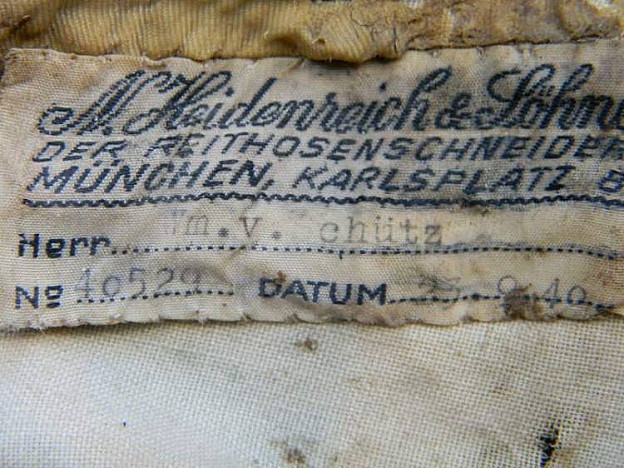 N. Heidenreich & Söhne
DER REITHOSENSCHNEIDER
MÜNCHEN, KARLSPLATZ 8
Herr Wm.v. chütz
No 40529 DATUM 25 9.40